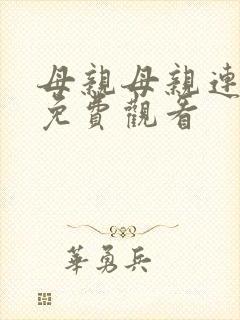 母親母親連
免費觀看
華勇兵